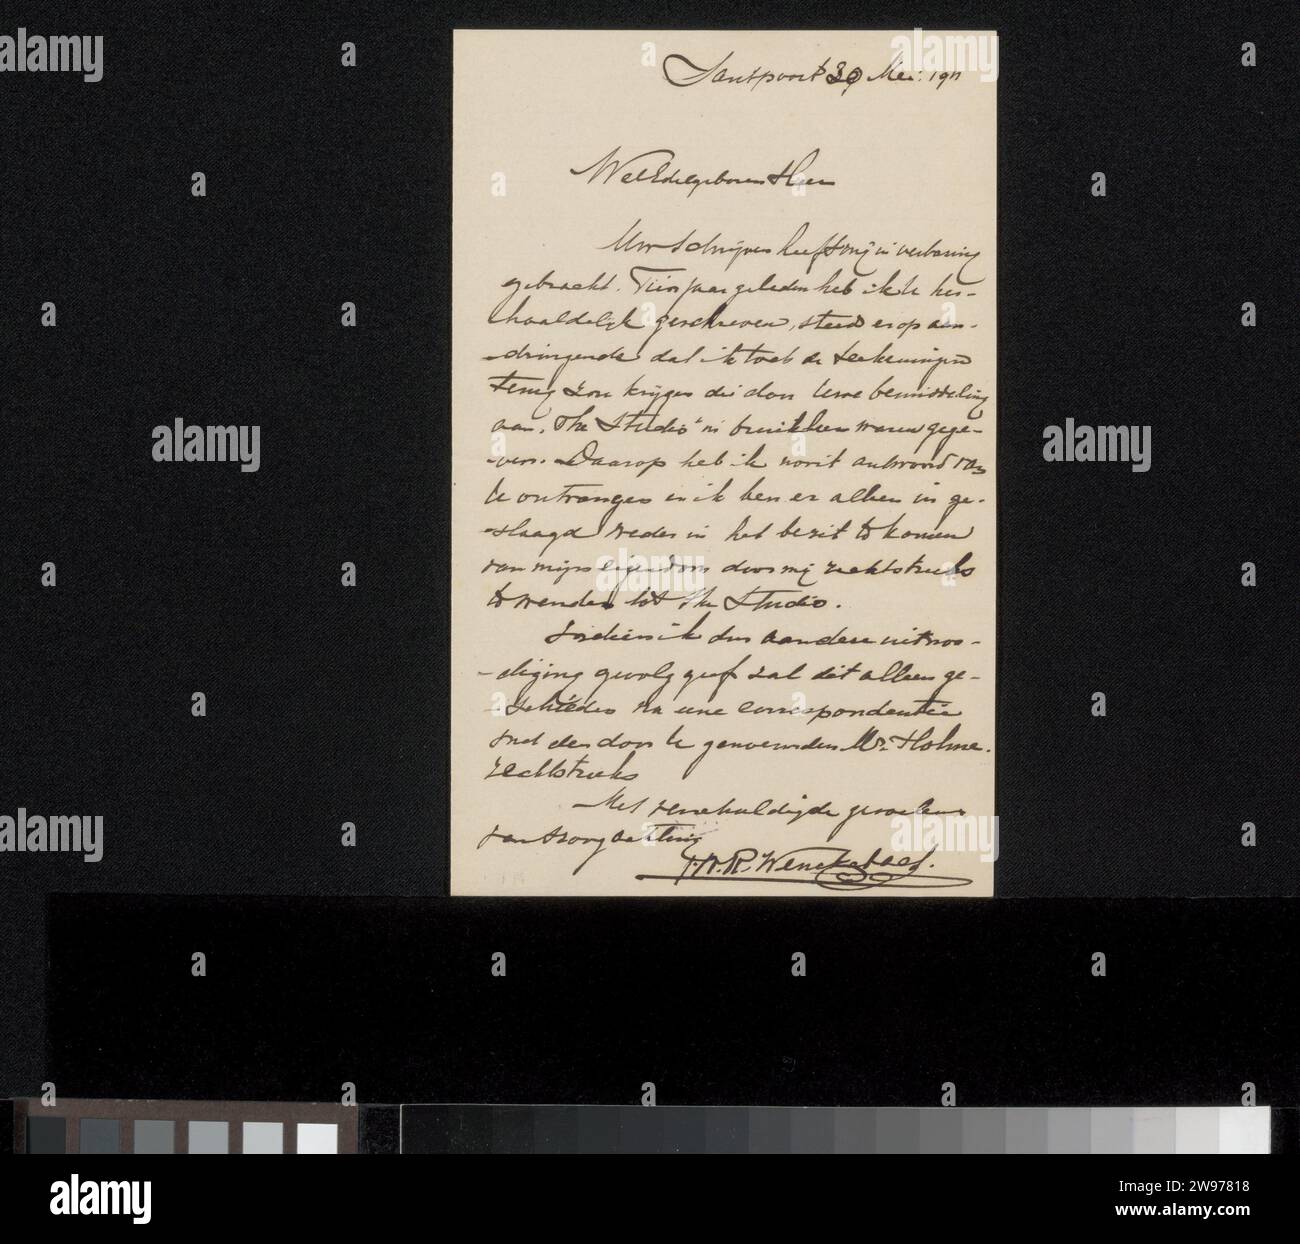 Santpoort 30 Mei: 1911
WelEdelgeboren Heer
Uw schrijven heeft mij in verbazing
gebracht. Tien jaar geleden heb ik U her-
haaldelijk geschreven, steeds er op aan-
dringende dat ik toch de teekeningen
terug zou krijgen die door Uwe bemiddeling
aan "The Studio" in bruikleen waren gege-
ven. Daarop heb ik nooit antwoord van
U ontvangen en ik ben er alleen in ge-
slaagd weder in het bezit te komen
van mijn eigendom door mij rechtstreeks
te wenden tot The Studio.
Indien ik dus aan deze uitnoo-
diging gevolg geef zal dit alleen ge-
schieden na eene correspondentie
met den door U genoemden Mr. Holme.
rechtstreeks
Met verschuldigde gevoelens
van hoogachting
H.W.R. Wenckebach.
alamy
a
Image ID: 2W97818
www.alamy.com